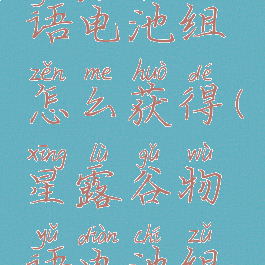 语电池组
zěn me huò dé
怎么获得(
xīng lù gǔ wù
星露谷物
yǔ diàn chí zǔ
语电池组